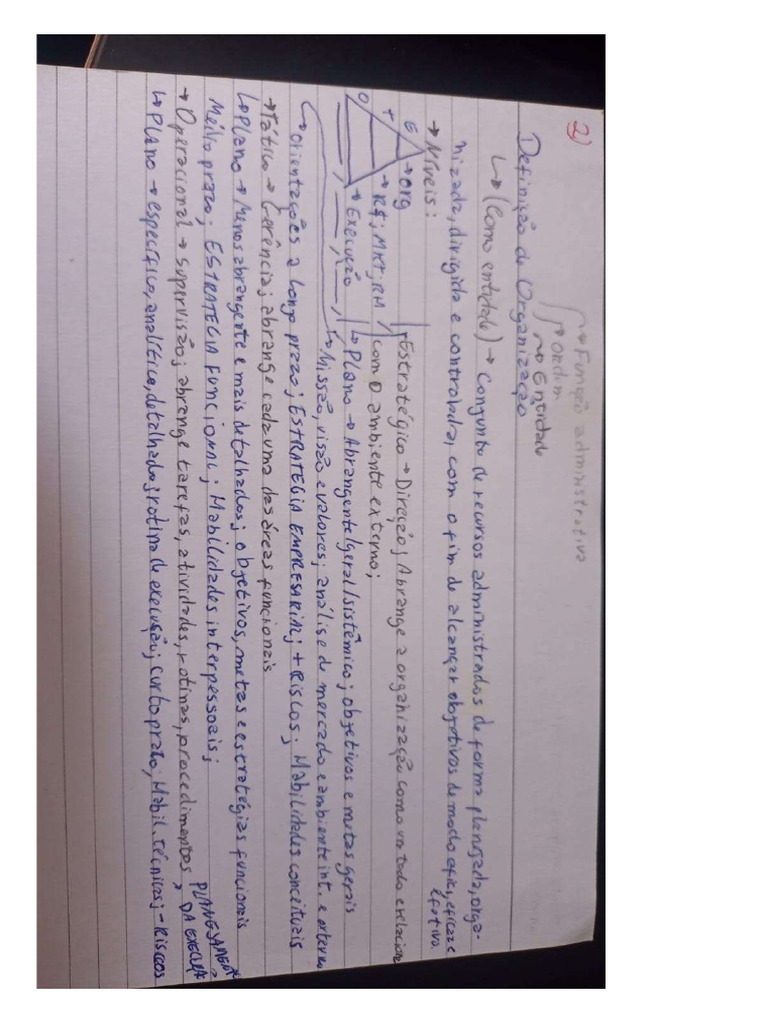 2)
→ Função administrativa
→ Ordem
→ Entidade
Definição de Organização
↳ (Como entidade) → Conjunto de recursos administrados de forma planejada, orga-
nizada, dirigida e controlada, com o fim de alcançar objetivos de modo efic., eficaz e
efetiva.
→ Níveis:
E → org
T → R$; MKT; RH
O → Execução
Estratégico → Direção; Abrange a organização como um todo e relaciona
com o ambiente externo;
↳ Plano → Abrangente/geral/sistêmico; objetivos e metas gerais
↳ Missão, visão e valores; análise do mercado e ambiente int. e externo
↳ Orientações a longo prazo; ESTRATEGIA EMPRESARIAL; + RISCOS; Habilidades conceituais
→ Tático → Gerência; abrange cada uma das áreas funcionais
↳ Plano → Menos abrangente e mais detalhados; objetivos, metas e estratégias funcionais
Médio prazo; ESTRATEGIA FUNCIONAL; Habilidades interpessoais;
→ Operacional → supervisão; abrange tarefas, atividades, rotinas, procedimentos,
PLANEJAMENTO
DA EXECUÇÃO
↳ Plano → específico, analítico, detalhado; rotina de execução; curto prazo; Habil. técnicas; - Riscos